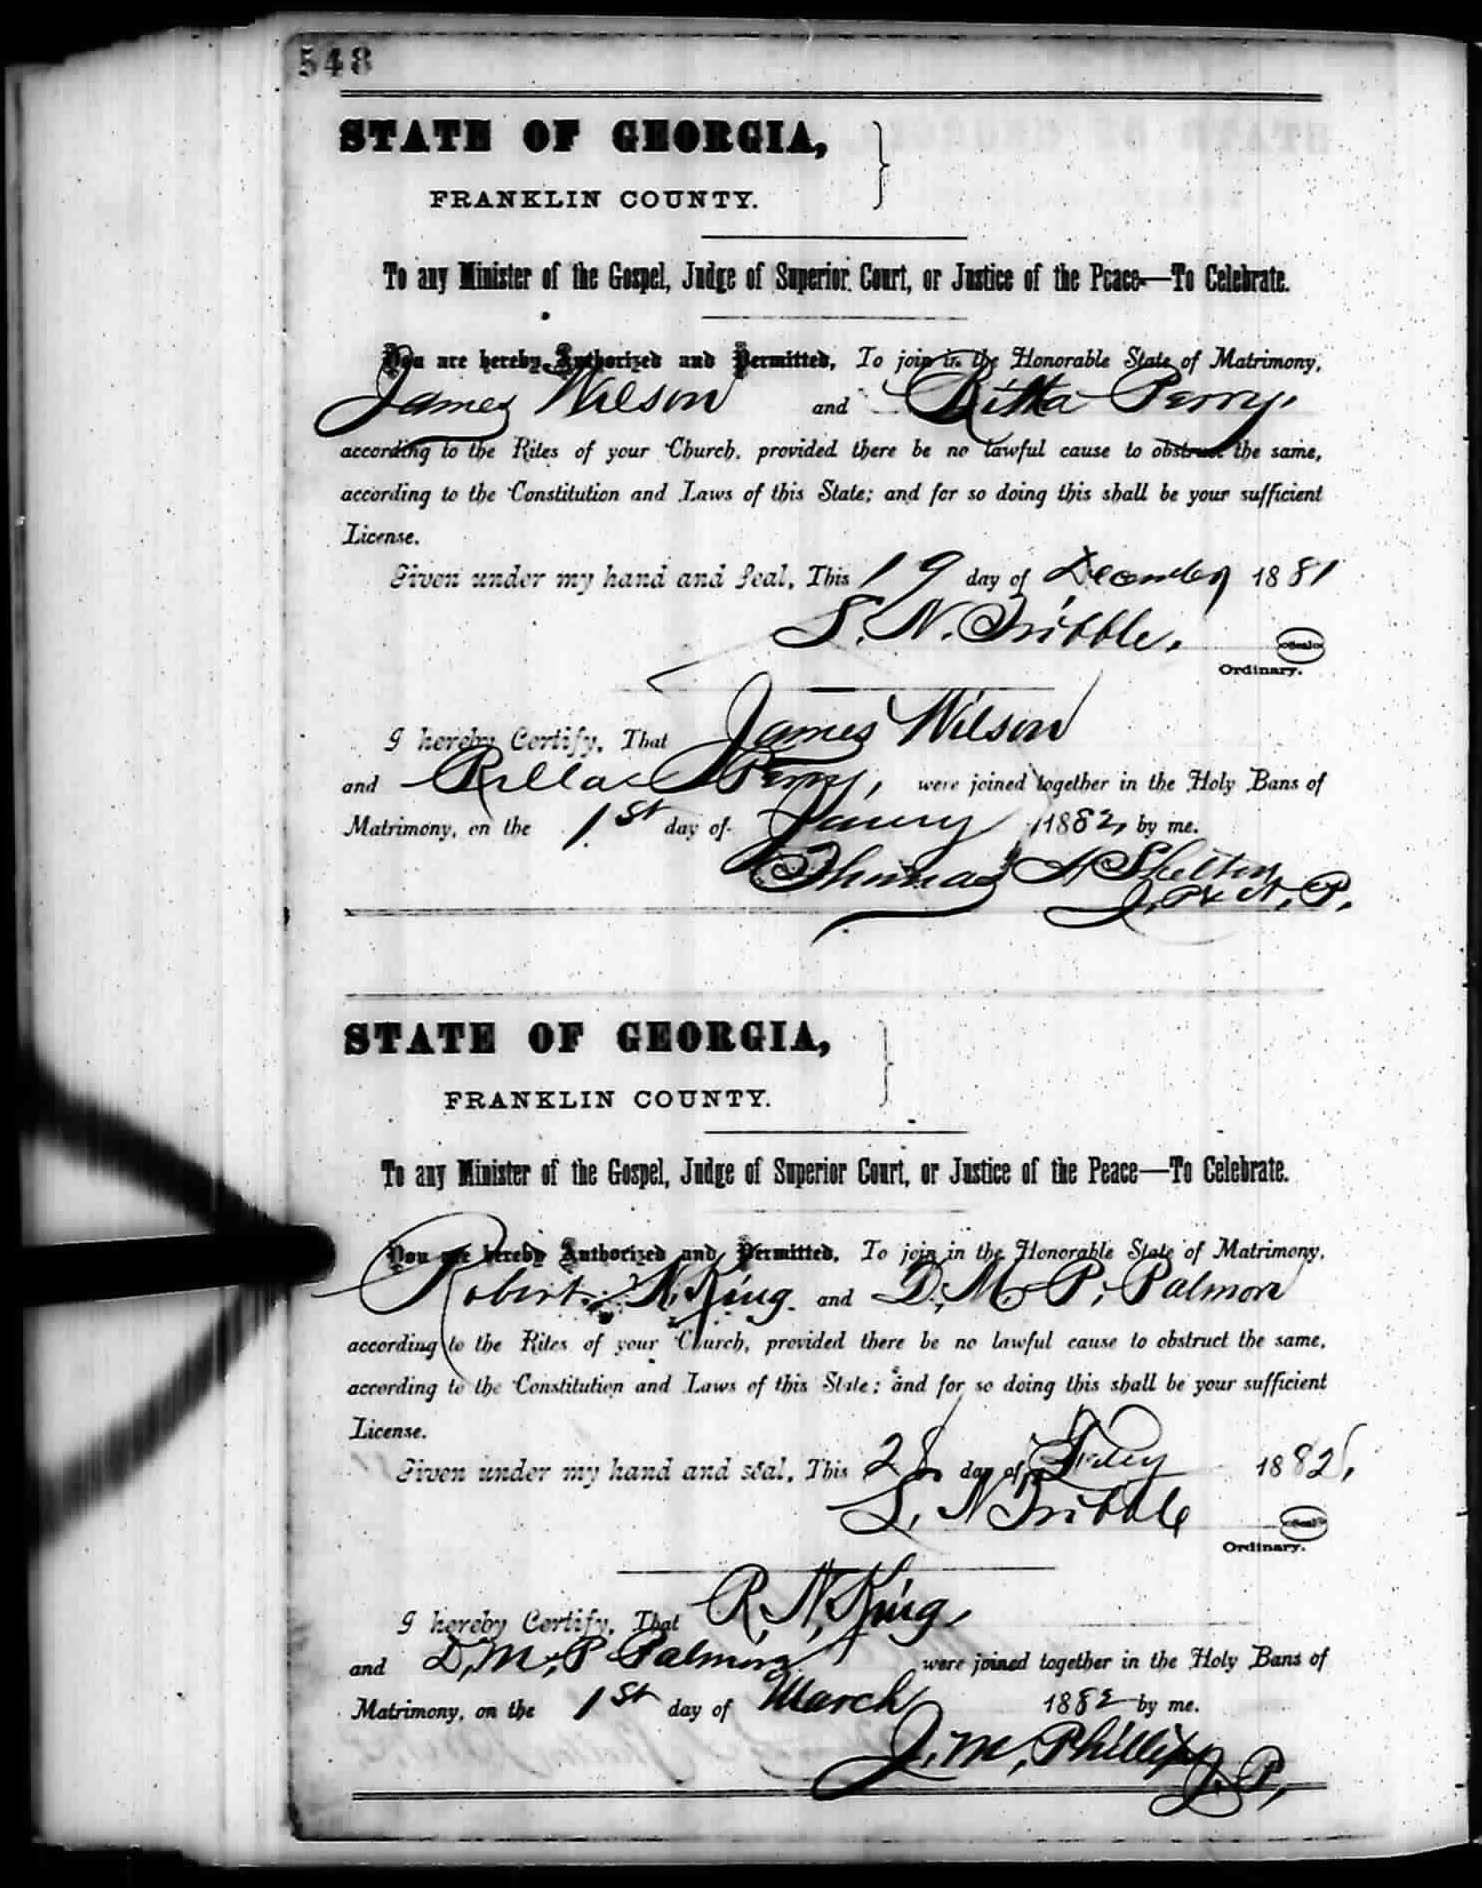 548
STATE OF GEORGIA,
FRANKLIN COUNTY.
To any Minister of the Gospel, Judge of Superior Court, or Justice of the Peace—To Celebrate.
You are hereby Authorized and Permitted, To join in the Honorable State of Matrimony,
James Wilson and Ritta Perry,
according to the Rites of your Church, provided there be no lawful cause to obstruct the same,
according to the Constitution and Laws of this State; and for so doing this shall be your sufficient
License.
Given under my hand and Seal, This 19 day of December 1881
S. N. Tribble,
Seal
Ordinary.
I hereby Certify, That James Wilson
and Perry, were joined together in the Holy Bans of
Matrimony, on the 1st day of 1882, by me.
Thomas A Shelton
P.
STATE OF GEORGIA,
FRANKLIN COUNTY.
To any Minister of the Gospel, Judge of Superior Court, or Justice of the Peace—To Celebrate.
You are hereby Authorized and Permitted, To join in the Honorable State of Matrimony,
Robert N. King and D. M. P. Palmore
according to the Rites of your Church, provided there be no lawful cause to obstruct the same,
according to the Constitution and Laws of this State; and for so doing this shall be your sufficient
License.
Given under my hand and seal, This 28 day of 1882,
S. N Tribble
Seal
Ordinary.
I hereby Certify, That R. N. King,
and D. M. P Palmore were joined together in the Holy Bans of
Matrimony, on the 1st day of March 1882 by me.
J. M. Phillips J. P.